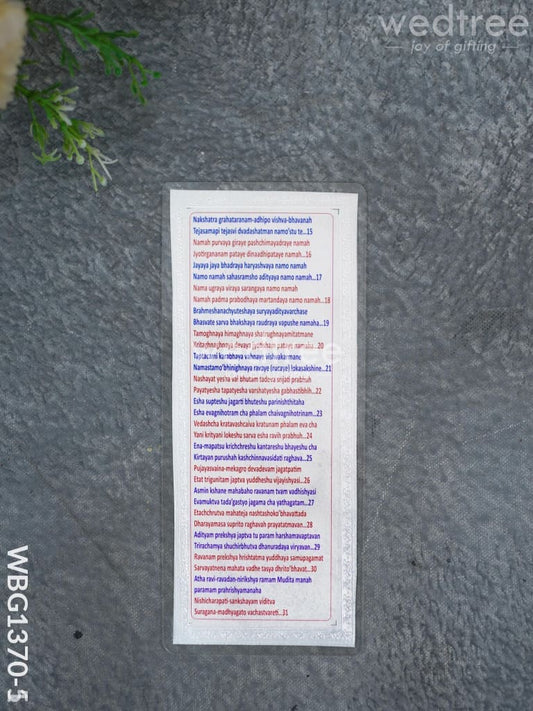 wedtree
joy of gifting
Nakshatra grahataranam-adhipo vishva-bhavanah
Tejasamapi tejasvi dvadashatman namo'stu te...15
Namah purvaya giraye pashchimayadraye namah
Jyotirgananam pataye dinaadhipataye namah...16
Jayaya jaya bhadraya haryashvaya namo namah
Namo namah sahasramsho adityaya namo namah...17
Nama ugraya viraya sarangaya namo namah
Namah padma prabodhaya martandaya namo namah...18
Brahmeshanachyuteshaya suryayadityavarchase
Bhasvate sarva bhakshaya raudraya vapushe namaha...19
Tamoghnaya himaghnaya shatrughnayamitatmane
Kritaghnaghnaya devaya jyotisham pataye namaha...20
Taptacami karabhaya vahnaye vishvakarmane
Namastamo'bhinighnaya ravaye (rucaye) lokasakshine...21
Nashayat yesha vai bhutam tadeva srijati prabhuh
Payatyesha tapatyesha varshatyesha gabhastibhih...22
Esha supteshu jagarti bhuteshu parinishthitaha
Esha evagnihotram cha phalam chaivagnihotrinam...23
Vedashcha kratavashcaiva kratunam phalam eva cha
Yani krityani lokeshu sarva esha ravih prabhuh...24
Ena-mapatsu krichchreshu kantareshu bhayeshu cha
Kirtayan purushah kashchinnavasidati raghava...25
Pujayasvaina-mekagro devadevam jagatpatim
Etat trigunitam japtva yuddheshu vijayishyasi...26
Asmin kshane mahabaho ravanam tvam vadhishyasi
Evamuktva tada'gastyo jagama cha yathagatam...27
Etachchrutva mahateja nashtashoko'bhavattada
Dharayamasa suprito raghavah prayatatmavan...28
Adityam prekshya japtva tu param harshamavaptavan
Trirachamya shuchirbhutva dhanuradaya viryavan...29
Ravanam prekshya hrishtatma yuddhaya samupagamat
Sarvayatnena mahata vadhe tasya dhrito'bhavat...30
Atha ravi-ravadan-nirikshya ramam Mudita manah
paramam prahrishyamanaha
Nishicharapati-sankshayam viditva
Suragana-madhyagato vachastvareti...31
WBG1370-1